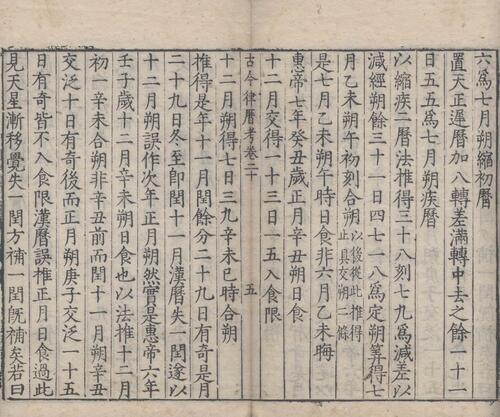 六爲七月朔縮初曆
置天正遲曆加八轉差滿轉中去之餘一十一
日五五爲七月朔疾曆
以縮疾二曆法推得三十八刻七九爲減差以
減經朔餘三十一日四七一八爲定朔筭得七
月乙未朔午初刻合朔以後從此推得止具交朔二條
是七月乙未朔午時日食非六月乙未晦
惠帝七年癸丑歲正月辛丑朔日食
十二月交得一十三日一五入食限
十二月朔得七日三九辛未巳時合朔
古今律曆考卷二十 五
推得是年十一月閏餘分二十九日有奇是月
二十九日冬至卽閏十一月漢曆失一閏遂以
十二月朔誤作次年正月朔然實是惠帝六年
壬子歲十二月辛未朔日食也以法推十二月
初一辛未合朔非辛丑前而閏十一月朔辛丑
交泛十日有奇後而正月朔庚子交泛一十五
日有奇皆不入食限漢曆誤推正月日食過此
見天星漸移覺失一閏方補一閏旣補矣若曰